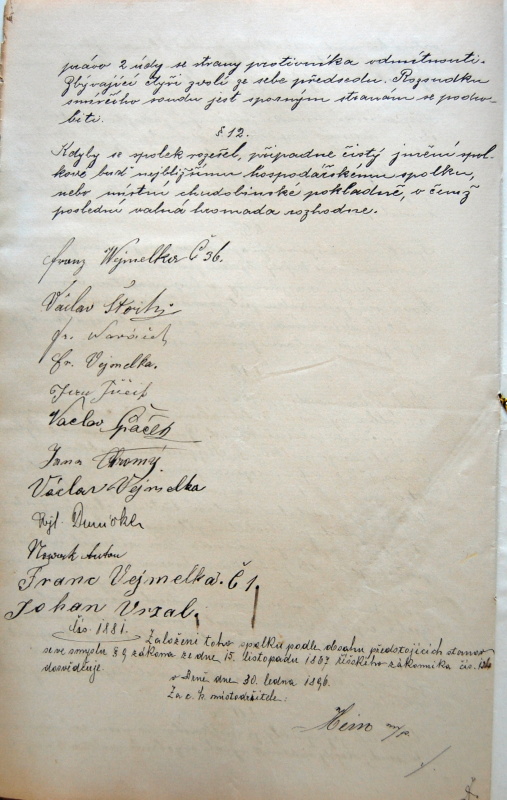 právo 2 údy se strany protivníka odmítnouti.
Zbývající čtyři zvolí ze sebe předsedu. Rozsudku
smírčího soudu jest sporným stranám se podro-
biti.
§ 12.
Kdyby se spolek rozešel, připadne čistý jmění spol-
kové buď nejbližšímu hospodářskému spolku,
nebo místní chudobinské pokladně, o čemž
poslední valná hromada rozhodne.
Franz Wejmelka Č 36.
Václav
Fr.
Fr. Vejmelka.
Václav Špaček
Jana
Václav Vejmelka
Nowak Anton
Franc Vejmelka. Č 1.
Johan Vrzal.
čís. 1881.
Založení toho spolku podle obsahu předstojících stanov
se ve smyslu § 9 zákona ze dne 15. listopadu 1867 říšského zákonníka čís. 134
dosvědčuje.
v Brně dne 30. ledna 1896.
Za c. k. místodržitele: